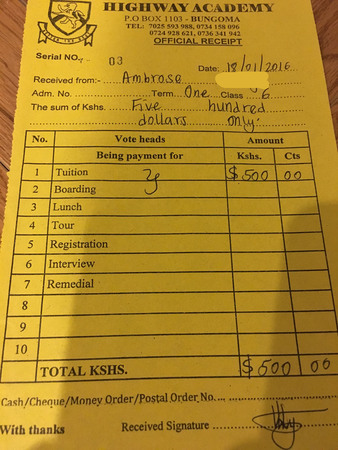 HIGHWAY ACADEMY
P.O BOX 1103 - BUNGOMA
TEL: 7025 593 988, 0734 158 096
0724 928 621, 0736 341 942
OFFICIAL RECEIPT
Serial NO. 03
Date: 18/01/2016
Received from:- Ambrose
Adm. No. Term One Class 6
The sum of Kshs. Five hundred
dollars only.
No. Vote heads Amount
Being payment for Kshs. Cts
1 Tuition $500 00
2 Boarding
3 Lunch
4 Tour
5 Registration
6 Interview
7 Remedial
8
9
10
TOTAL KSHS. $500 00
Cash/Cheque/Money Order/Postal Order No.
With thanks Received Signature